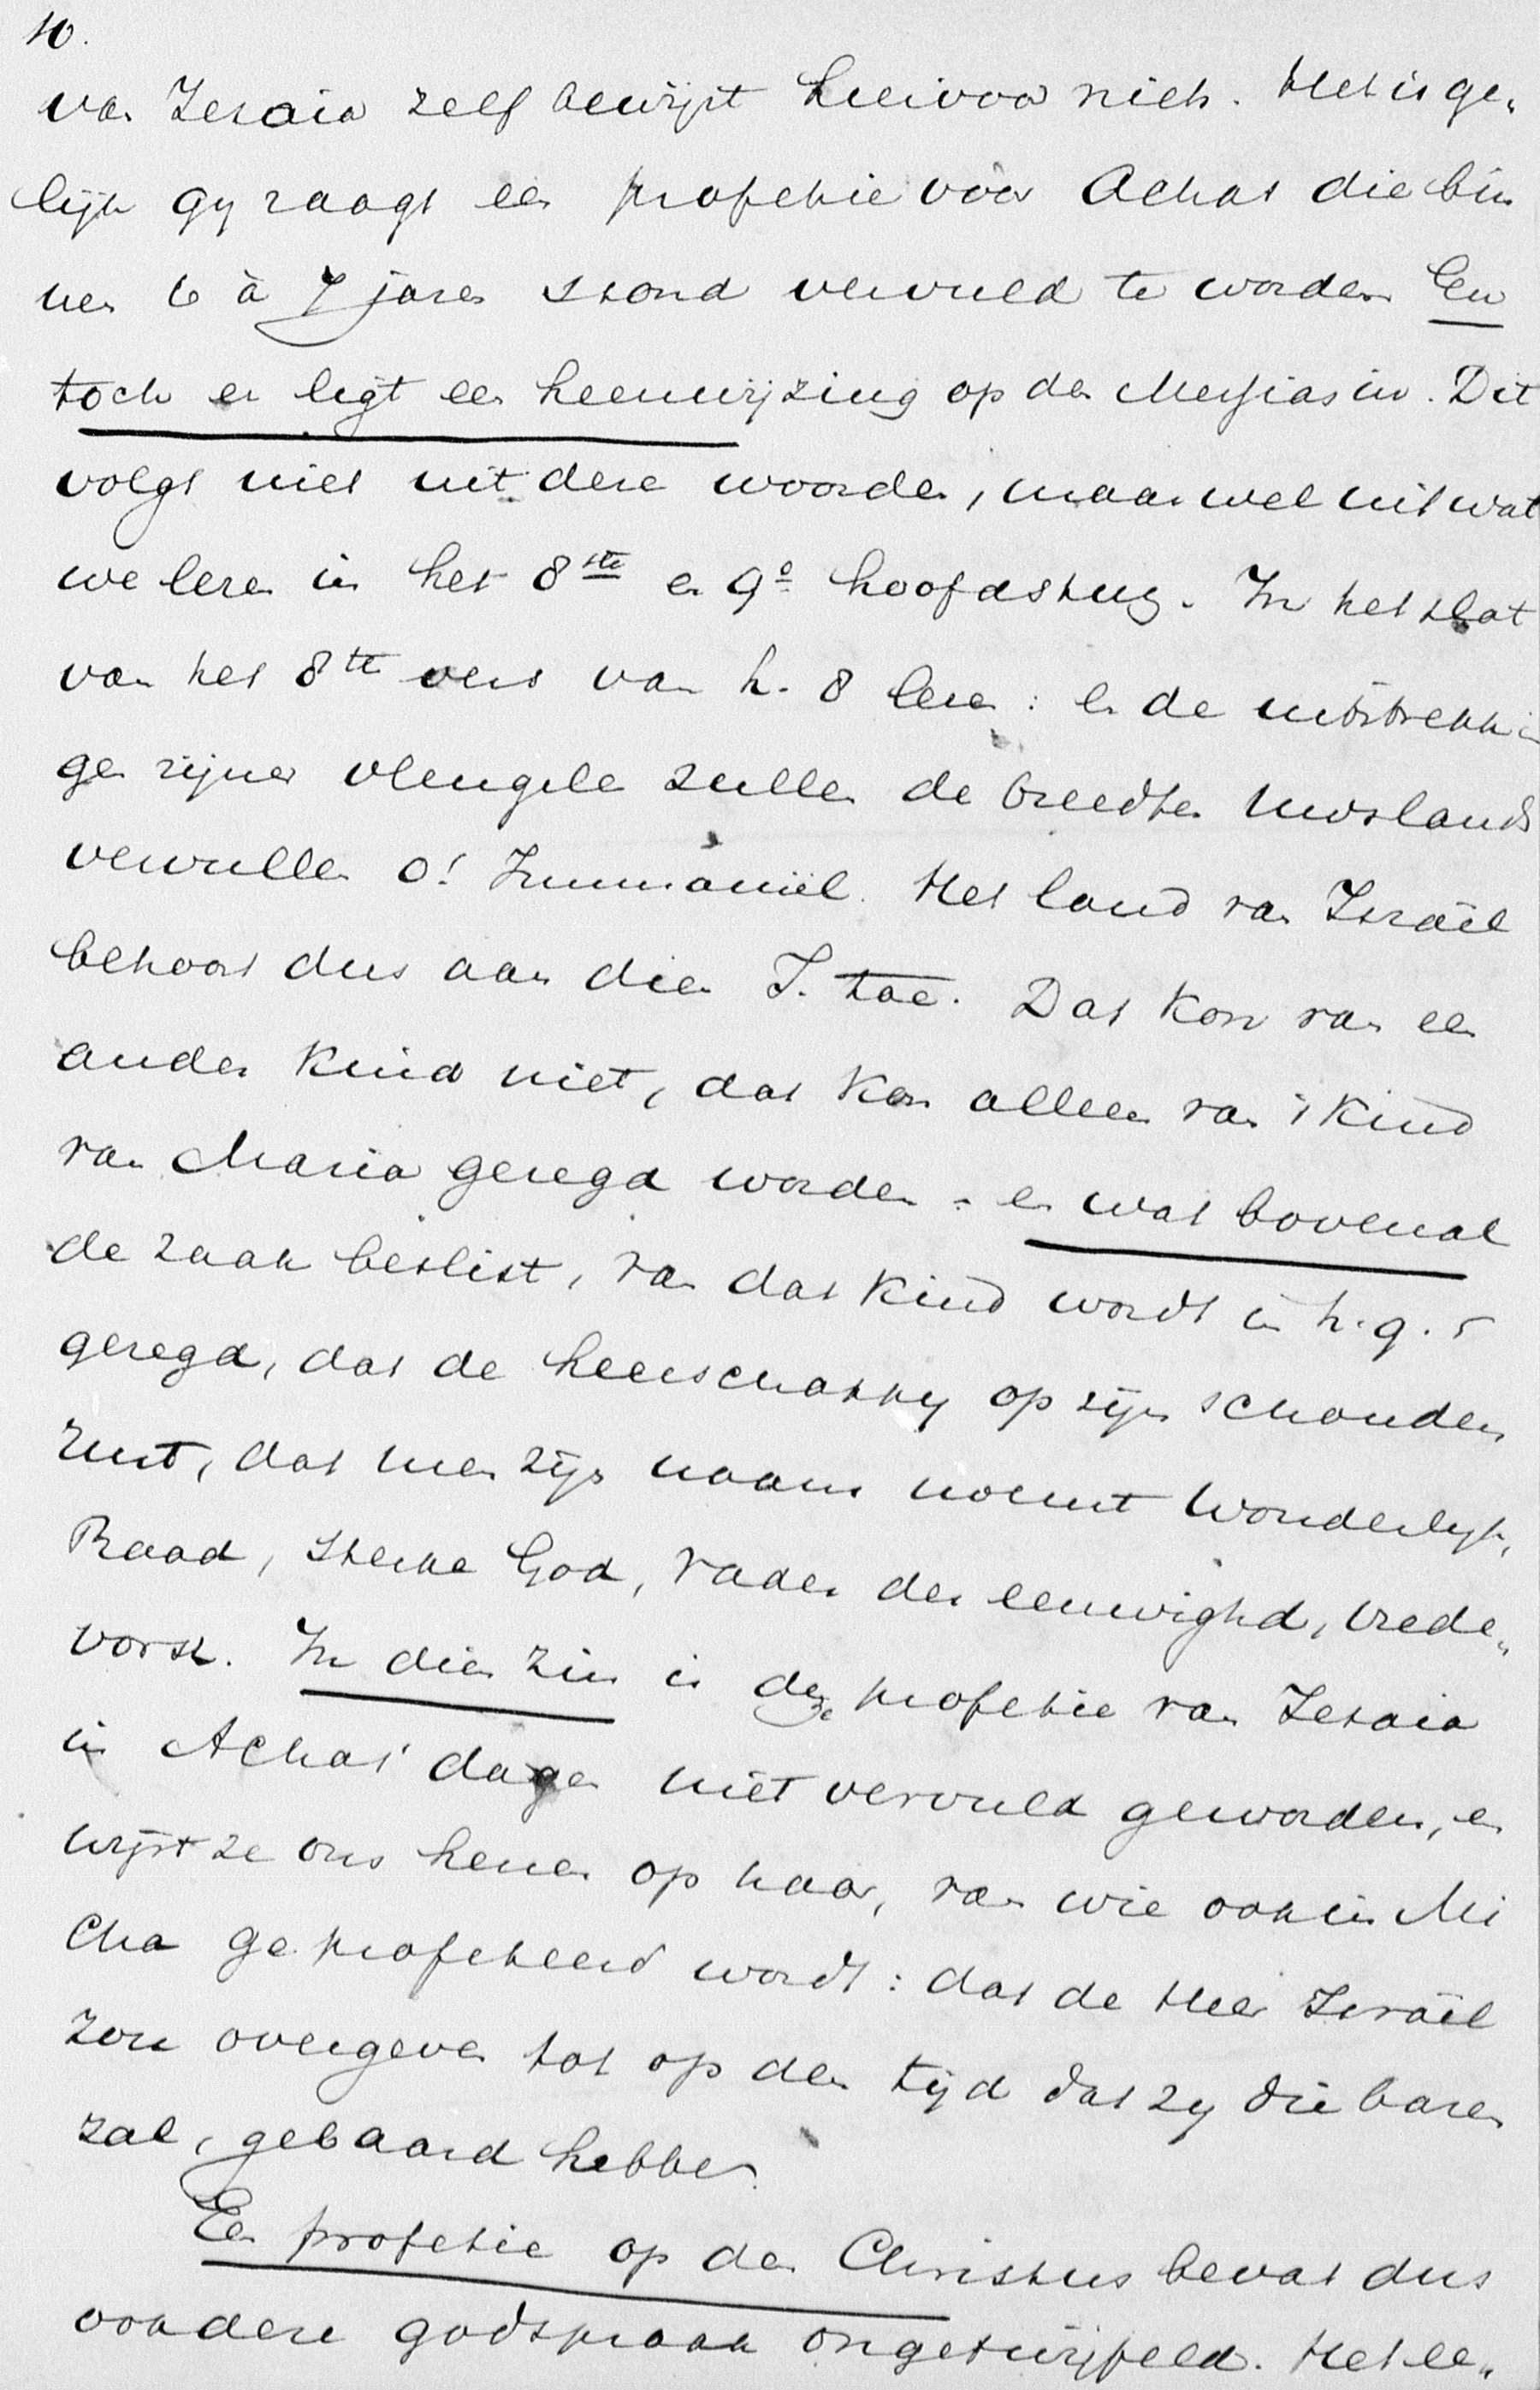 10.
van Jesaia zelf bewijst hiervoor niets. Het is ge„
lijk gy zaagt een profetie voor Achas die bin
nen 6 à 7 jaren stond vervuld te worden En
toch er ligt een heenwijzing op den Messias in. Dit
volgt niet uit deze woorden, maar wel uit wat
we lezen in het 8ste en 9e hoofdstuk. In het slot
van het 8ste vers van h. 8 lezen: en de uitstrekkin
gen zijner vleugelen zullen de breedte Uwslands
vervullen o! Immanüel. Het land van Israël
behoort dus aan dien I. toe. Dat kon van een
ander kind niet, dat kon alleen van 't kind
van Maria gezegd worden - en wat bovenal
de zaak beslist, van dat kind wordt in h. 9. 5
gezegd, dat de heerschappy op zijn schouder
rust, dat men zijn naam noemt Wonderlyk,
Raad, Sterke God, Vader der eeuwighd, vrede„
vorst. In dien zin is deze profetie van Jesaia
in Achas' dagen niet vervuld geworden, en
wijst ze ons henen op haar, van wie ook in Mi
cha geprofeteerd wordt: dat de Heer Israël
zou overgeven tot op den tijd dat zy die baren
zal, gebaard hebben.
Een profetie op den Christus bevat dus
ook deze godspraak ongetwijfeld. Het ee„